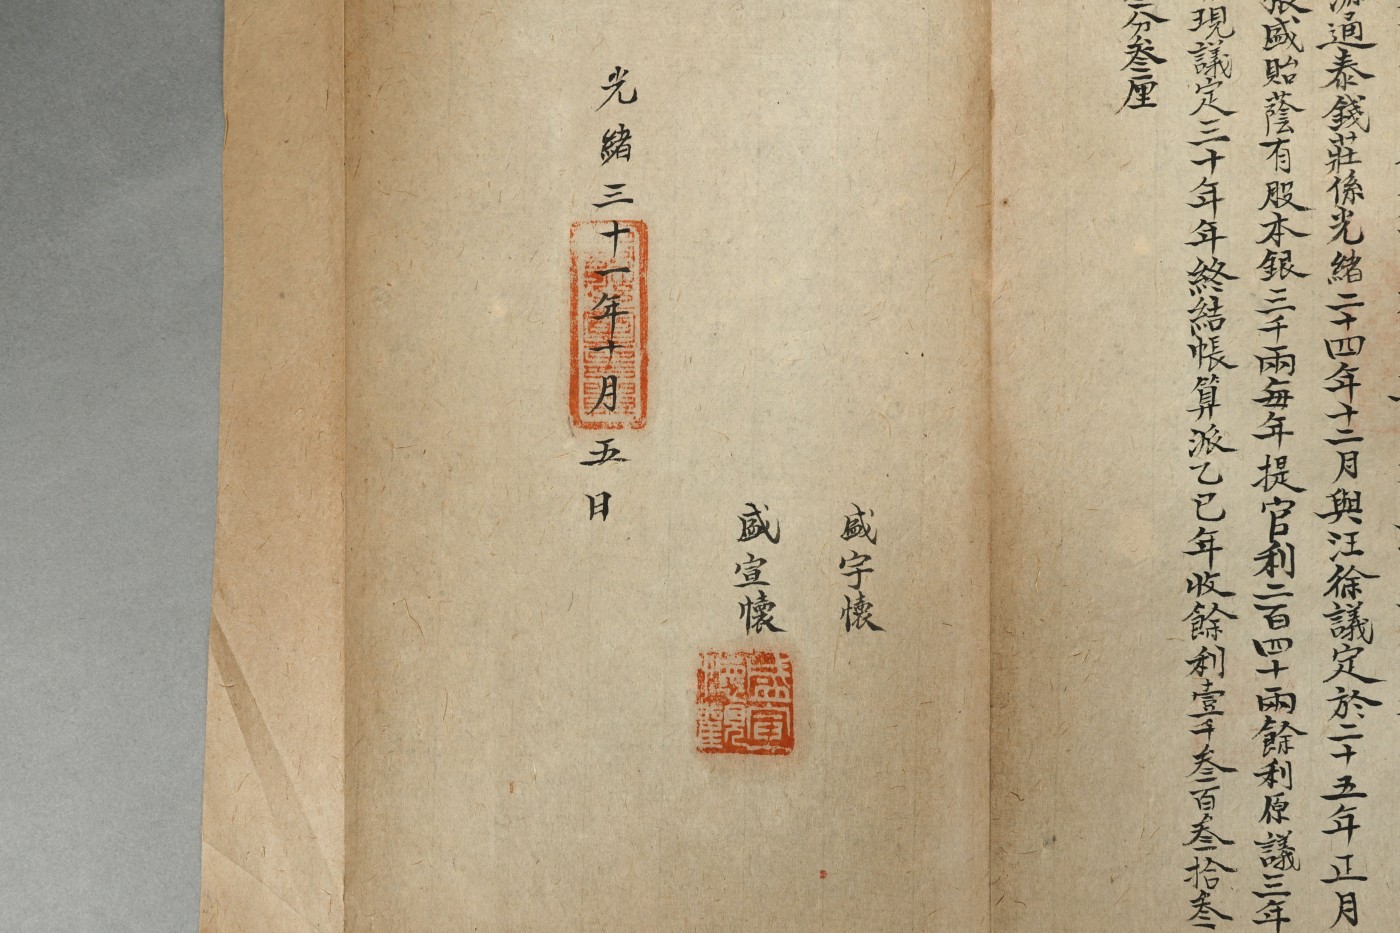 源通泰錢莊係光緒二十四年十二月與汪徐議定於二十五年正月
張盛貽蔭有股本銀三千兩每年提官利二百四十兩餘利原議三年
現議定三十年年終結帳算派乙巳年收餘利壹千叁百叁拾叁
分叁厘
盛宇懷
盛宣懷
盛宣懷觀
光緒三十一年十月五日